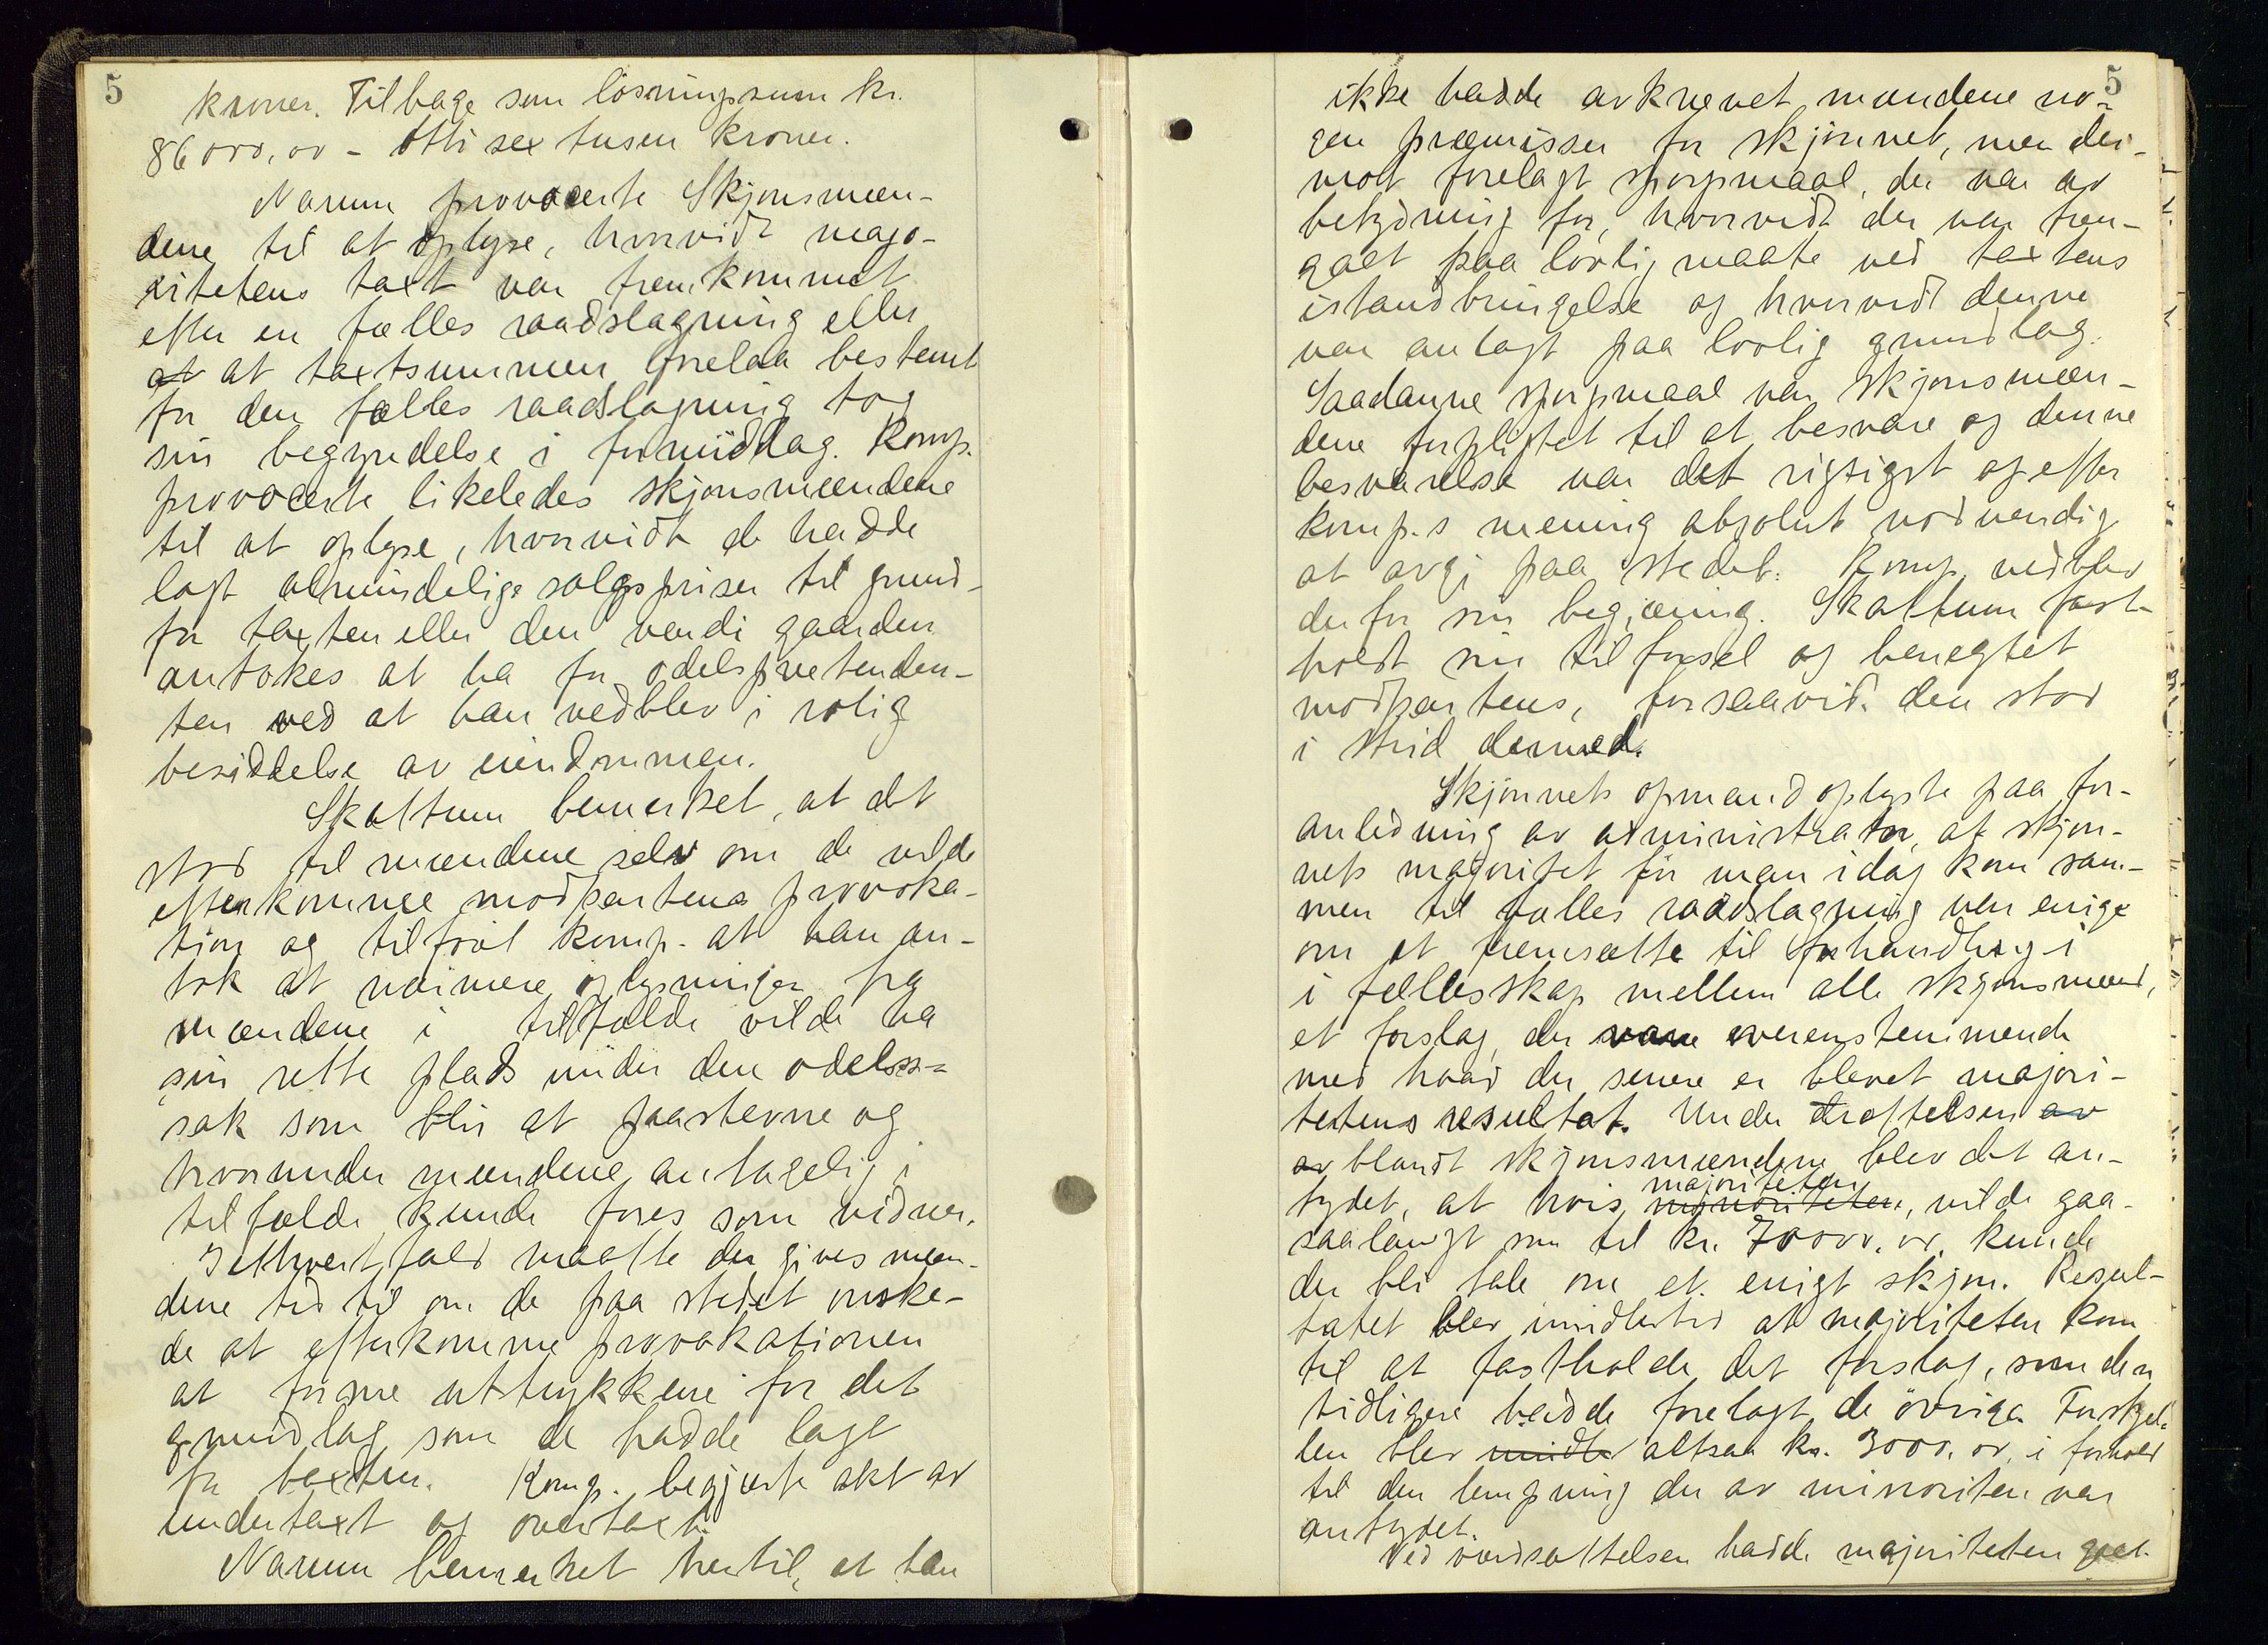 5
kroner. Tilbage som løsningssum kr.
86000,00 - Otti sex tusen kroner.
Narum provocerte Skjønsmæn-
dene til at oplyse, hvorvidt majo-
ritetens taxt var fremkommet
efter en fælles raadslagning eller
at at taxtsummen forelaa bestemt
før den fælles raadslagning tog
sin begyndelse i formiddag. Komp.
provocerte likeledes skjønsmændene
til at oplyse, hvorvidt de hadde
lagt almindelige salgspriser til grund
for taxten eller den værdi gaarden
antokes at ha for odelsprætenden-
ten ved at han vedblev i rolig
besiddelse av eiendommen.
Skattum bemerket, at det
stod til mændene selv om de vilde
efterkomme modpartens provoka-
tion og tilføiet komp. at han an-
tok at nærmere oplysninger fra
mændene i tilfælde vilde ha
sin rette plads under den odelss-
sak som blir at paastevne og
hvorunder mændene antagelig i
tilfælde kunde føres som vidner.
I ethvert fald maatte der gives mæn-
dene tid til om de paa stedet ønske-
de at efterkomme provokationen
at forme uttrykkene for det
grundlag som de hadde lagt
for taxten. Komp. begjærte akt av
undertaxt og overtaxt.
Narum bemerket hertil, at han
5
ikke hadde avkrævet mændene no-
gen præmisser for skjønnet, men der-
mot forelagt spørsmaal, der var av
betydning for, hvorvidt der var frem-
gaat paa lovlig maate ved taxtens
istandbringelse og hvorvidt denne
var anlagt paa lovlig grundlag.
Saadanne spørsmaal var skjønsmæn-
dene forpligtet til at besvare og denne
besvarelse var det rigtigst og efter
komp.s mening absolut nødvendig
at avgi paa stedet. Komp. vedblev
derfor sin begjæring. Skattum fast-
holdt sin tilførsel og benegtet
modpartens, forsaavidt den stod
i strid dermed.
Skjønnets opmand oplyste paa for-
anledning av administrator, at skjøn-
nets majoritet før man idag kom sam-
men til fælles raadslagning var enige
om at fremsætte til forhandling i
i fellesskap mellem alle skjønsmænd,
et forslag, der være overensstemmende
med hvad der senere er blevet majori-
tetens resultat. Under drøftelsen av
av blandt skjønsmændene blev det an-
tydet, at hvis majoriteten minoriteten, vilde gaa
saalangt som til kr. 70000,00, kunde
der bli tale om et enigt skjøn. Resul-
tatet blev imidlertid at majoriteten kom
til at fastholde det forslag, som den
tidligere hadde forelagt de övrige. Forskjel-
len blev altsaa kr. 3000,00, i forhold
til den lempning der av minoriteten var
antydet.
Ved værdsættelsen hadde majoriteten gaat